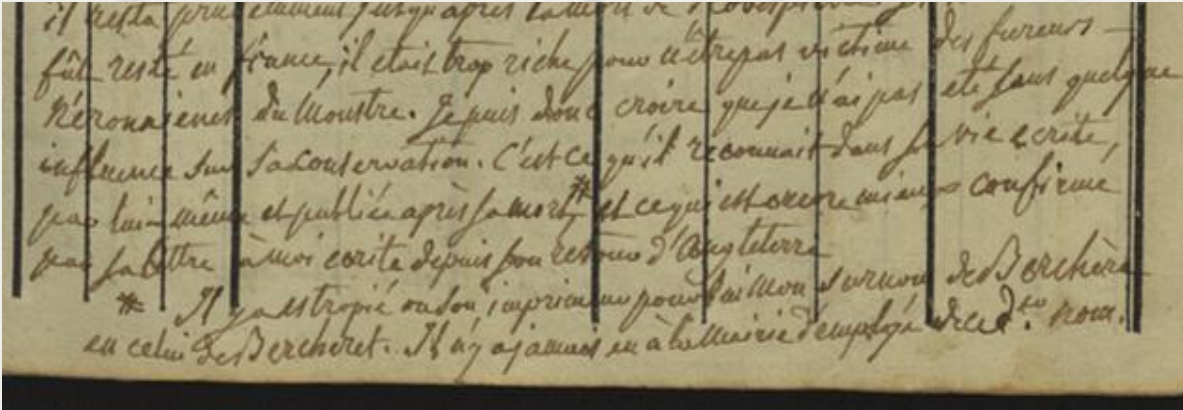 il resta prudemment jusqu'après la mort de Robespierre
fût resté en france, il etait trop riche pour n'être pas victime des fureurs
Néronaienes du Monstre. Je puis donc croire que je n'ai pas eté sans quelque
influence sur sa conservation. C'est ce qu'il reconnait dans sa vie ecrite,
par lui-même et publiée après sa mort,* et ce qui est encore mieux confirmé
par sa lettre à moi ecrite depuis son retour d'Angleterre
* Il y a estropié ou son imprimeur pour lui Mon surnom de Berchère
en celui de Bercheret. Il n'y a jamais eu à la Mairie d'employé de ce d.er nom.